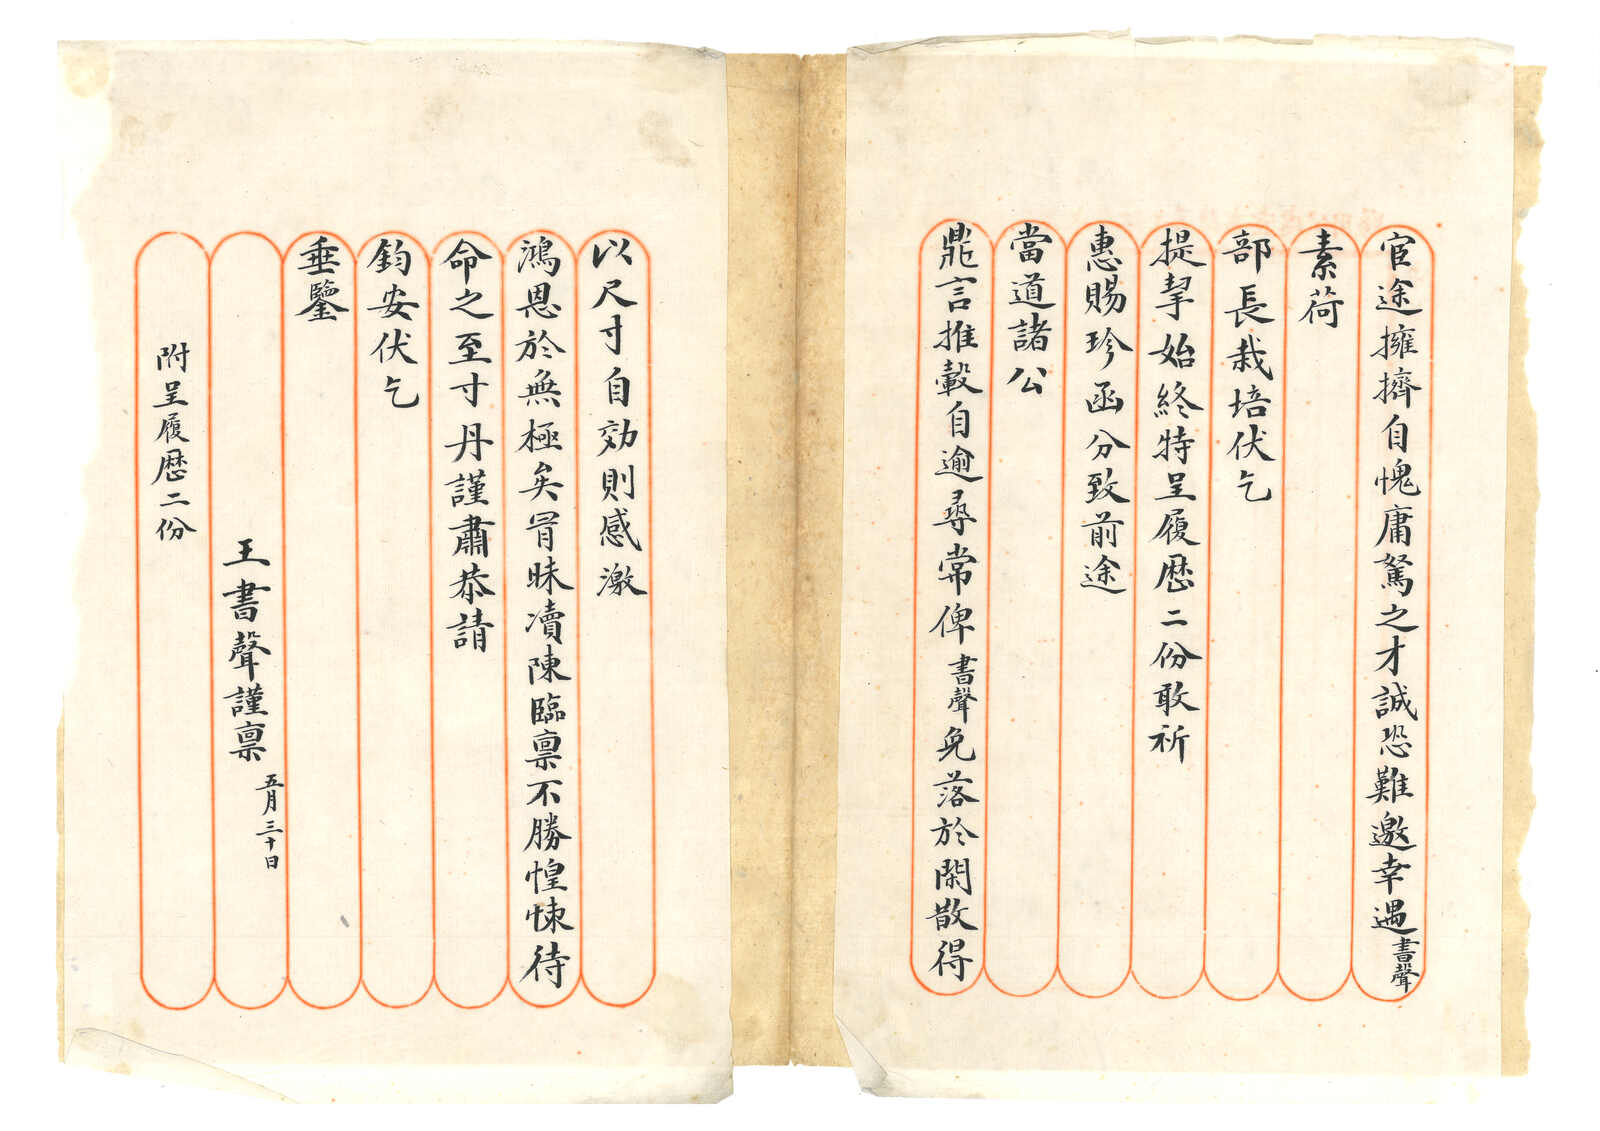 宦途擁擠自愧庸駑之才誠恐難邀幸遇書聲
素荷
部長栽培伏乞
提挈始終特呈履歷二份敢祈
惠賜珍函分致前途
當道諸公
鼎言推轂自逾尋常俾書聲免落於閑散得
以尺寸自効則感激
鴻恩於無極矣冒昧瀆陳臨稟不勝惶悚待
命之至寸丹謹肅恭請
鈞安伏乞
垂鑒
王書聲謹稟
五月三十日
附呈履歷二份